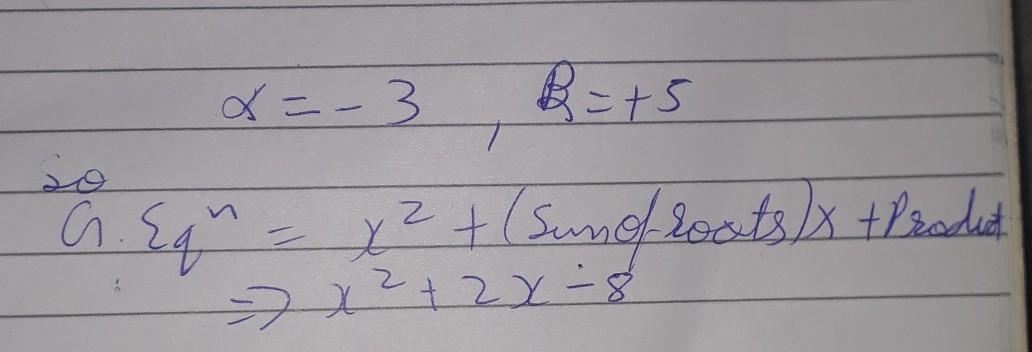 α = - 3 , β = + 5
20
G. Eqⁿ = x² + (Sum of roots)x + Product
⇒ x² + 2x - 8